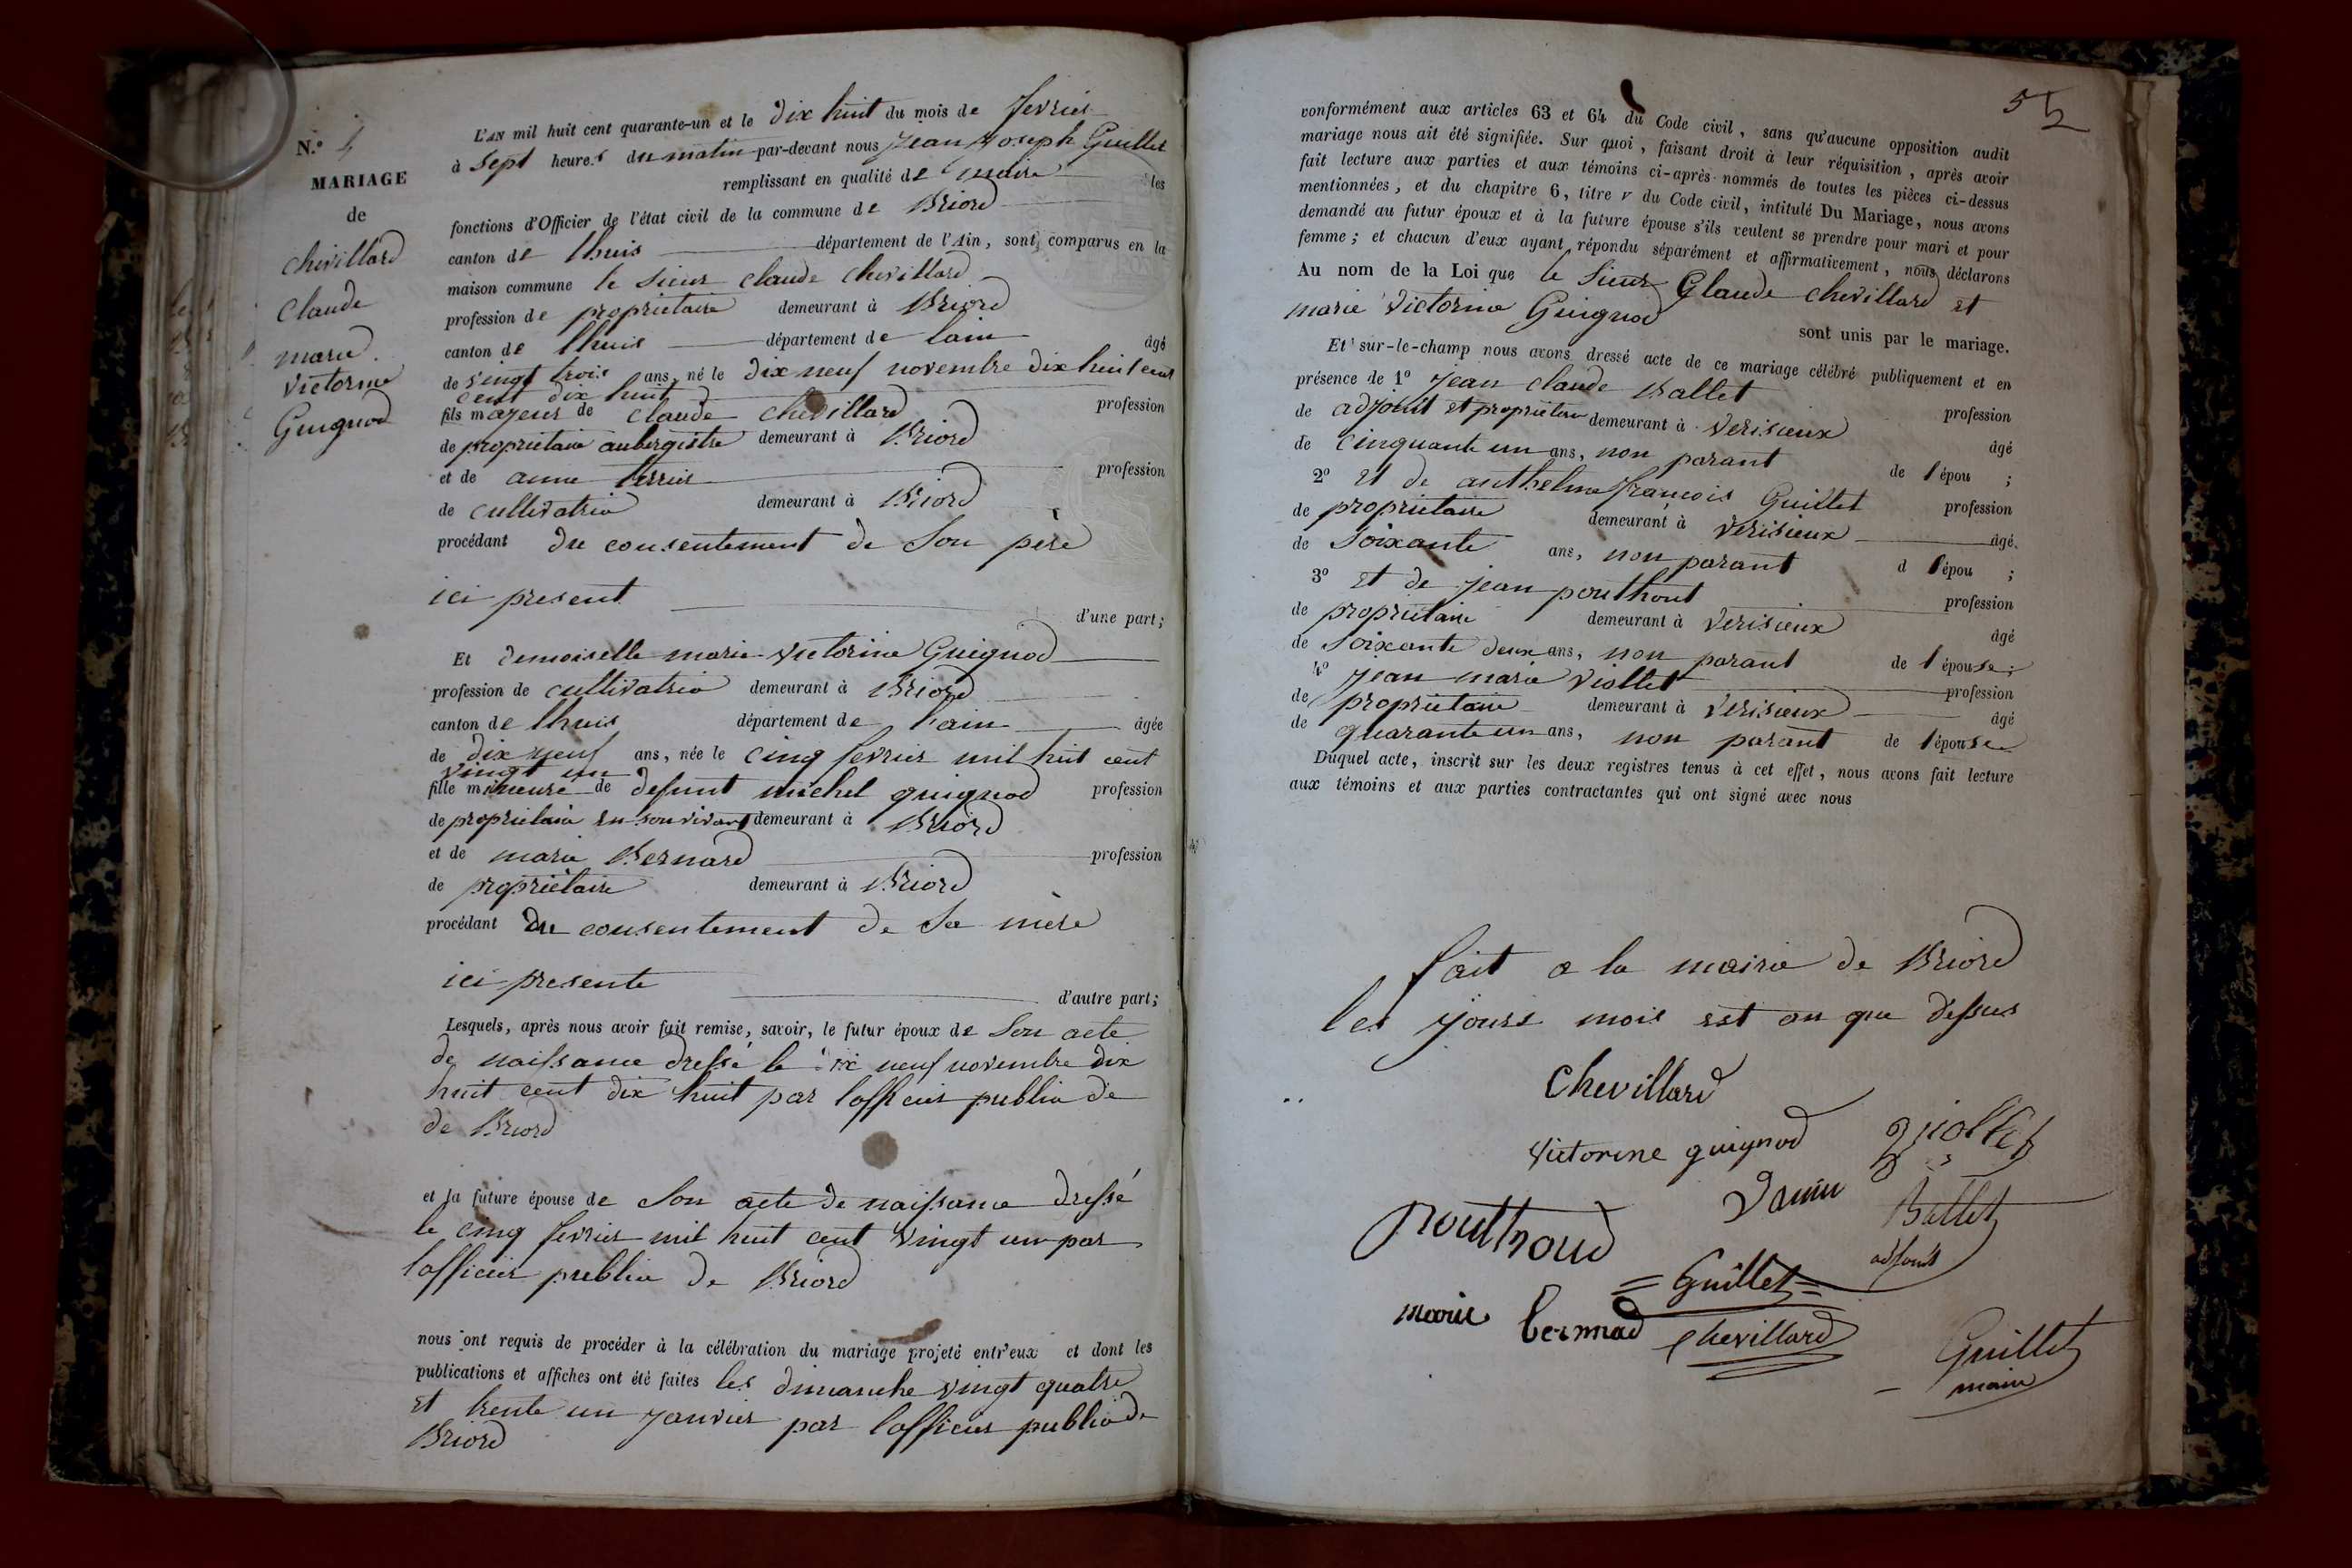 N.º 4
MARIAGE
de
chevillard
Claude
marie
victorine
Guignod
L'AN mil huit cent quarante-un et le dix huit du mois de fevrier
à sept heures du matin par-devant nous jean joseph Guillet
remplissant en qualité de maire les
fonctions d'Officier de l'état civil de la commune de Briord
canton de lhuis département de l'Ain, sont comparus en la
maison commune le sieur claude chevillard
profession de proprietaire demeurant à Briord
canton de lhuis département de lain âgé
de vingt trois ans, né le dix neuf novembre dix huit cent
cent dix huit
fils majeur de claude chevillard profession
de proprietaire aubergiste demeurant à Briord
et de anne profession
de cultivatrice demeurant à Briord
procédant du consentement de Son père
ici present
d'une part;
Et demoiselle marie victorine Guignod
profession de cultivatrice demeurant à Briord
canton de lhuis département de l'ain âgée
de dix neuf ans, née le cinq fevrier mil huit cent
vingt un
fille mineure de defunt michel guignod profession
de proprietaire en son vivant demeurant à Briord
et de marie Bernard profession
de propriètaire demeurant à Briord
procédant du consentement de Sa mère
ici presente
d'autre part;
Lesquels, après nous avoir fait remise, savoir, le futur époux de Son acte
de naissance dressé le dix neuf novembre dix
huit cent dix huit par lofficier public de
de Briord
et la future épouse de Son acte de naissance dressé
le cinq fevrier mil huit cent vingt un par
lofficier public de Briord
nous ont requis de procéder à la célébration du mariage projeté entr'eux et dont les
publications et affiches ont été faites les dimanche vingt quatre
et trente un janvier par lofficier public de
Briord
55
conformément aux articles 63 et 64 du Code civil, sans qu'aucune opposition audit
mariage nous ait été signifiée. Sur quoi, faisant droit à leur réquisition, après avoir
fait lecture aux parties et aux témoins ci-après nommés de toutes les pièces ci-dessus
mentionnées, et du chapitre 6, titre v du Code civil, intitulé Du Mariage, nous avons
demandé au futur époux et à la future épouse s'ils veulent se prendre pour mari et pour
femme; et chacun d'eux ayant répondu séparément et affirmativement, nous déclarons
Au nom de la Loi que le Sieur Claude chevillard et
marie victorine Guignod sont unis par le mariage.
Et sur-le-champ nous avons dressé acte de ce mariage célébré publiquement et en
présence de 1º jean claude Ballet profession
de adjoint et proprietaire demeurant à verisieux âgé
de cinquante un ans, non parant de l épou ;
2º Et de anthelme françois Guillet profession
de proprietaire demeurant à verisieux âgé
de Soixante ans, non parant d l épou ;
3º Et de jean pouthout profession
de proprietaire demeurant à verisieux âgé
de Soixante deux ans, non parant de l épouse;
4º jean marie viollet profession
de proprietaire demeurant à verisieux âgé
de quarante un ans, non parant de l épouse
Duquel acte, inscrit sur les deux registres tenus à cet effet, nous avons fait lecture
aux témoins et aux parties contractantes qui ont signé avec nous
fait a la mairie de Briord
les jours mois est an que dessus
Chevillard
victorine guignod viollet
Ballet
adjoint
Pouthoud
Guillet
marie bernnad chevillard
Guillet
maire